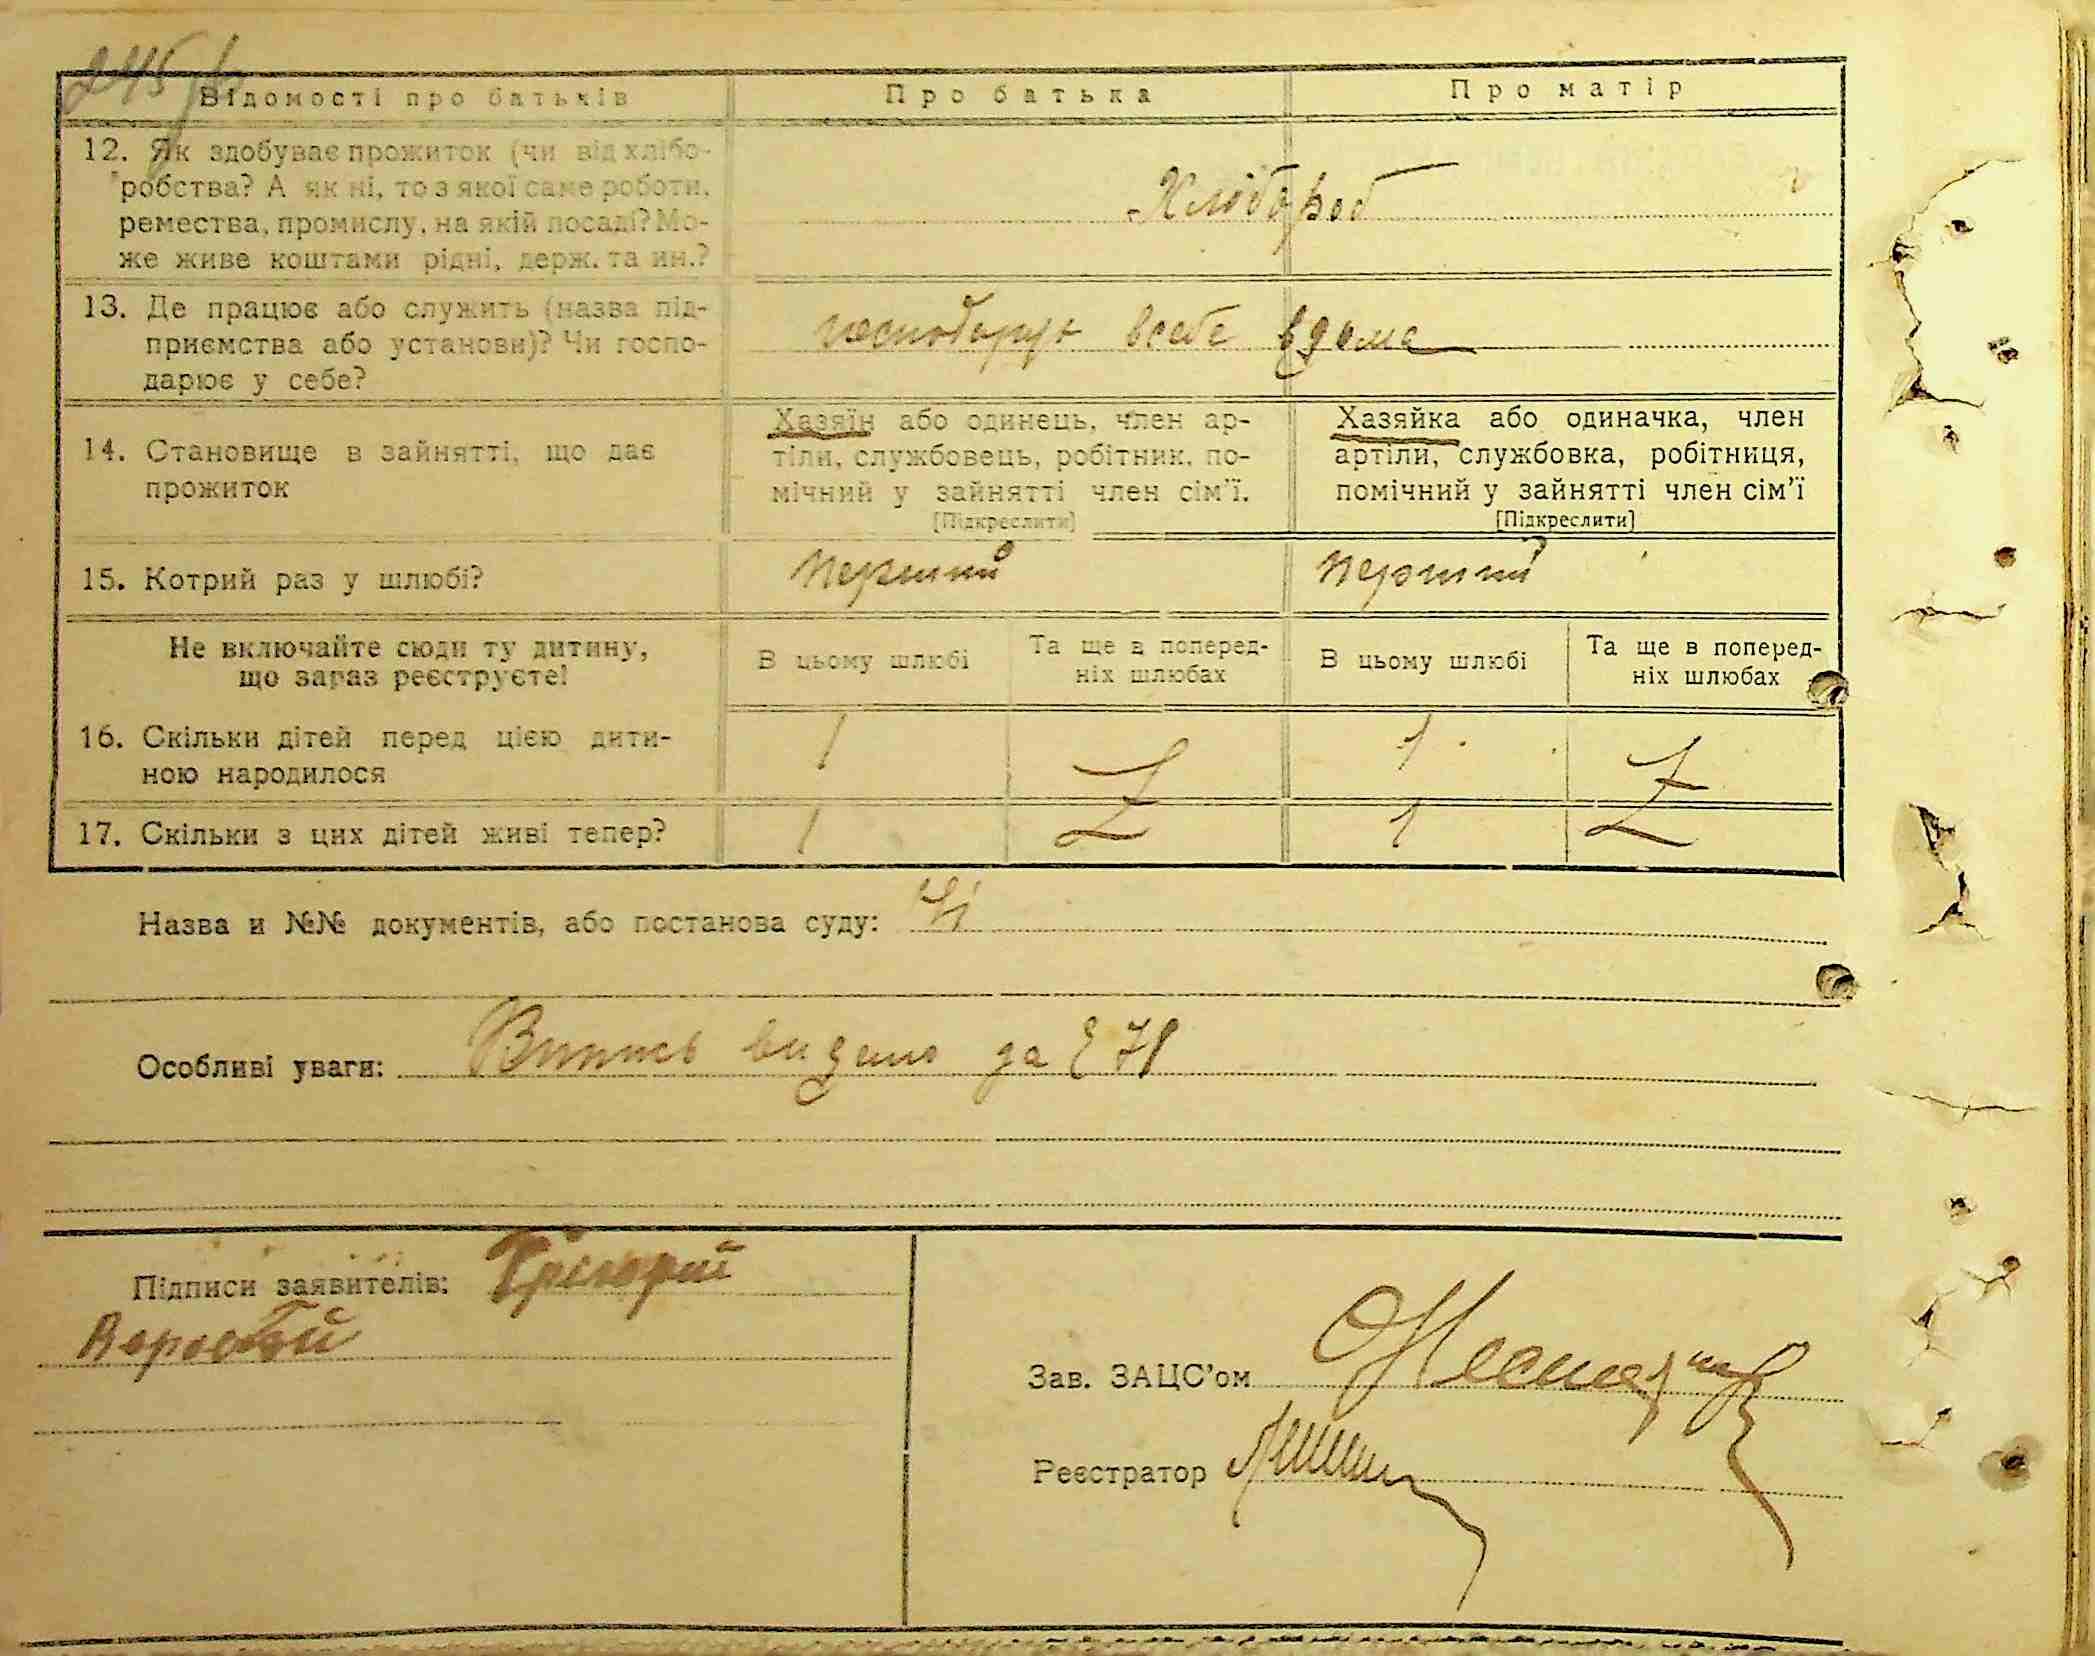 245
Відомості про батьків
Про батька
Про матір
12. Як здобуває прожиток (чи від хлібо-
робства? А як ні, то з якої саме роботи,
ремества, промислу, на якій посаді? Мо-
же живе коштами рідні, держ. та ин.?
Хлібороб
13. Де працює або служить (назва під-
приємства або установи)? Чи госпо-
дарює у себе?
господарює в себе вдома
14. Становище в зайнятті, що дає
прожиток
Хазяїн або одинець, член ар-
тіли, службовець, робітник, по-
мічний у зайнятті член сім'ї.
[Підкреслити]
Хазяйка або одиначка, член
артіли, службовка, робітниця,
помічний у зайнятті член сім'ї
[Підкреслити]
15. Котрий раз у шлюбі?
перший
перший
Не включайте сюди ту дитину,
що зараз реєструєте!
В цьому шлюбі
Та ще в поперед-
ніх шлюбах
В цьому шлюбі
Та ще в поперед-
ніх шлюбах
16. Скільки дітей перед цією дити-
ною народилося
1
1
17. Скільки з цих дітей живі тепер?
1
1
Назва и №№ документів, або постанова суду:
Особливі уваги: Випись видано за 78
Підписи заявителів: Григорий
Зав. ЗАЦС'ом
Реєстратор